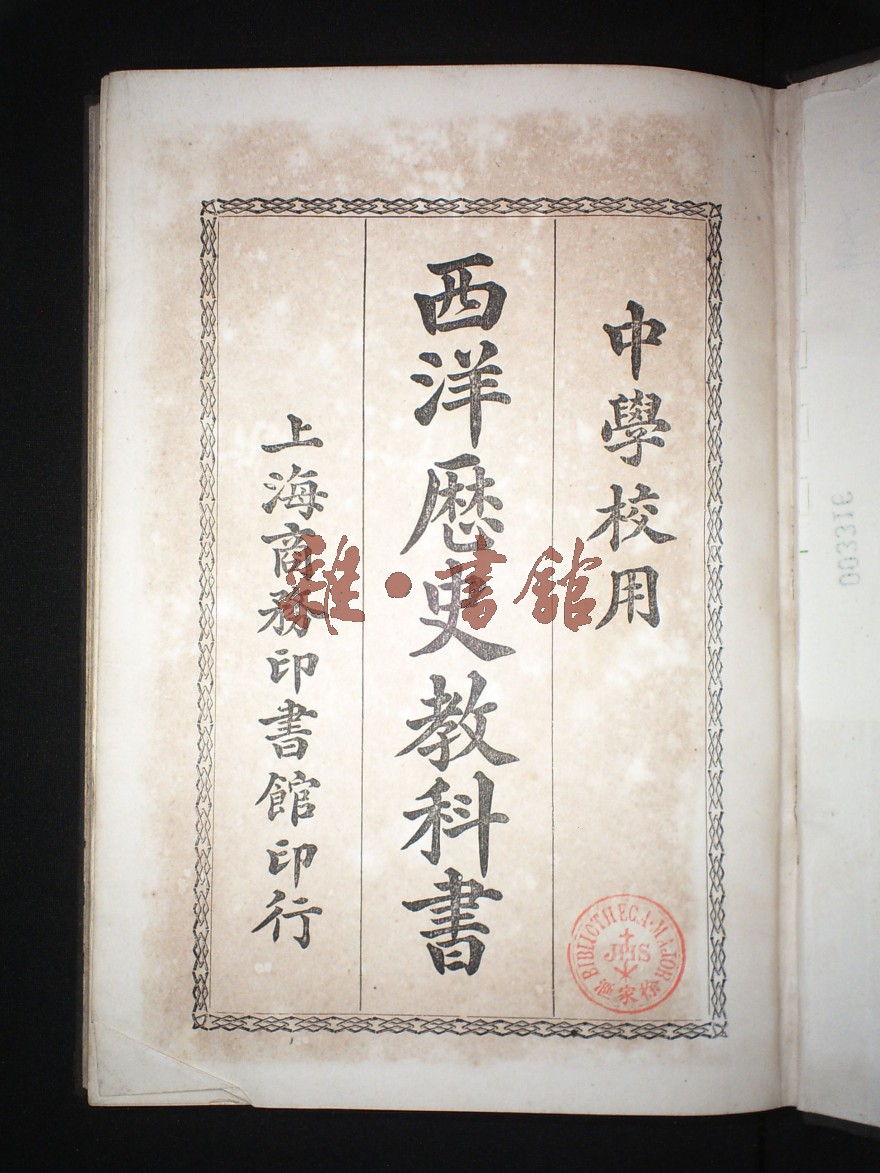 中學校用
西洋歷史教科書
上海商務印書館印行
雜·書館
BIBLIOTHECA·MAJOR
JHS
徐家滙
003316